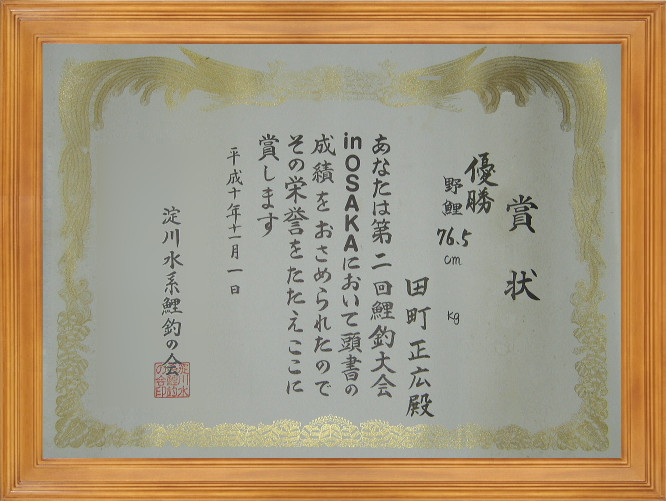 賞状
優勝
野鯉 76.5cm kg
田町正広殿
あなたは第二回鯉釣大会
inOSAKAにおいて頭書の
成績をおさめられたので
その栄誉をたたえここに
賞します
平成十年十一月一日
淀川水系鯉釣の会